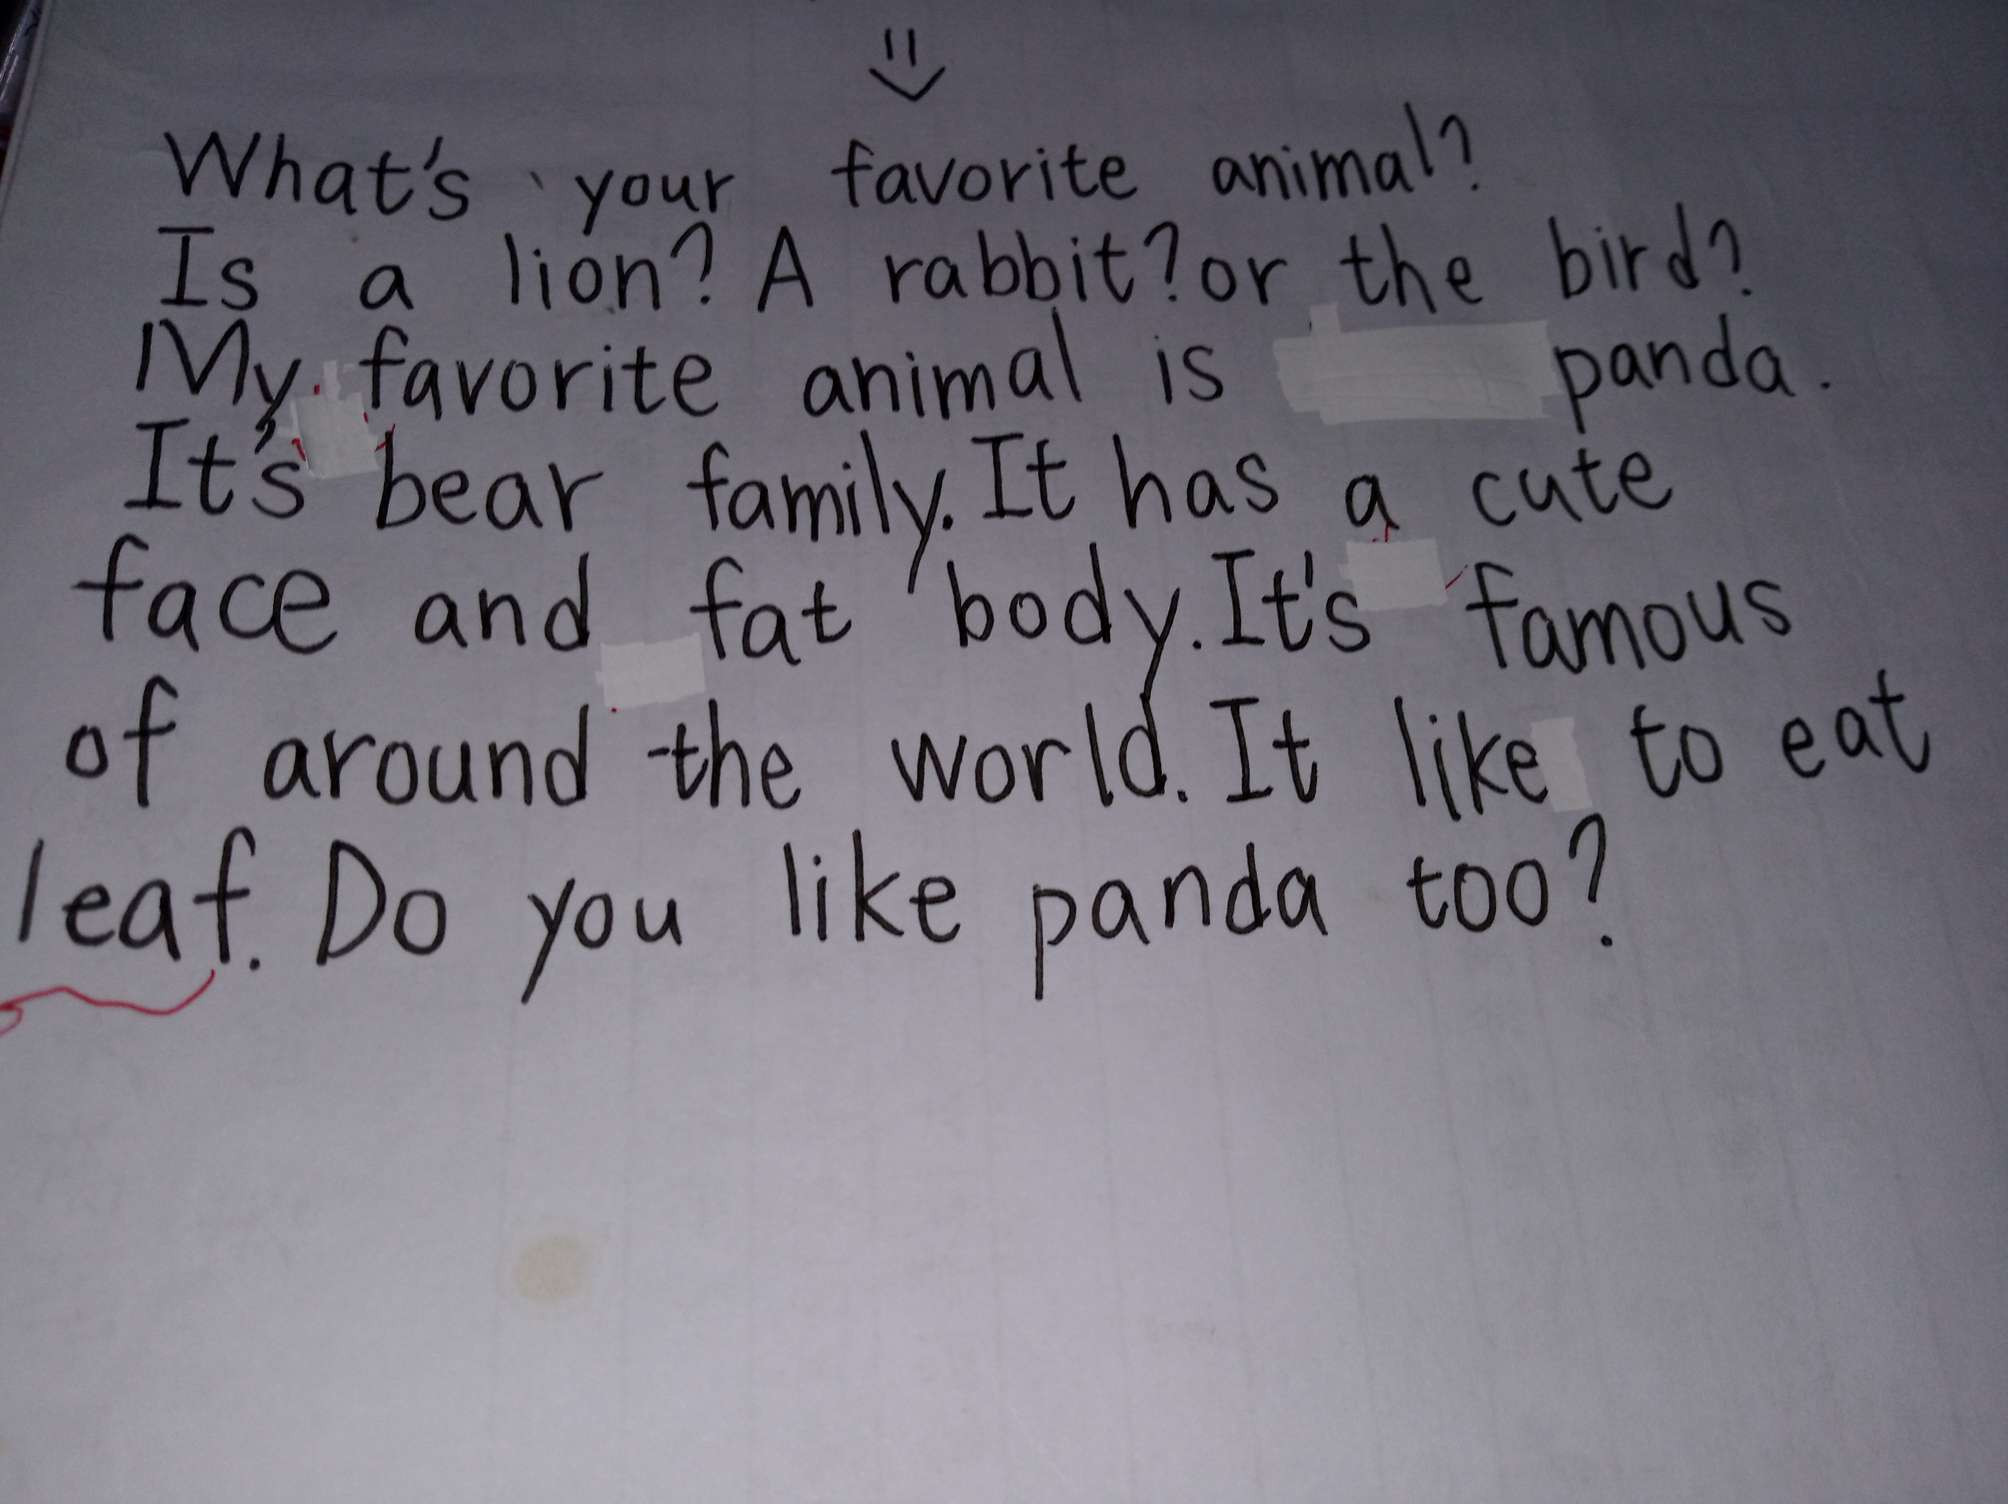 What's your favorite animal?
Is a lion? A rabbit? or the bird?
My favorite animal is panda.
It's bear family. It has a cute
face and fat body. It's famous
of around the world. It like to eat
leaf. Do you like panda too?